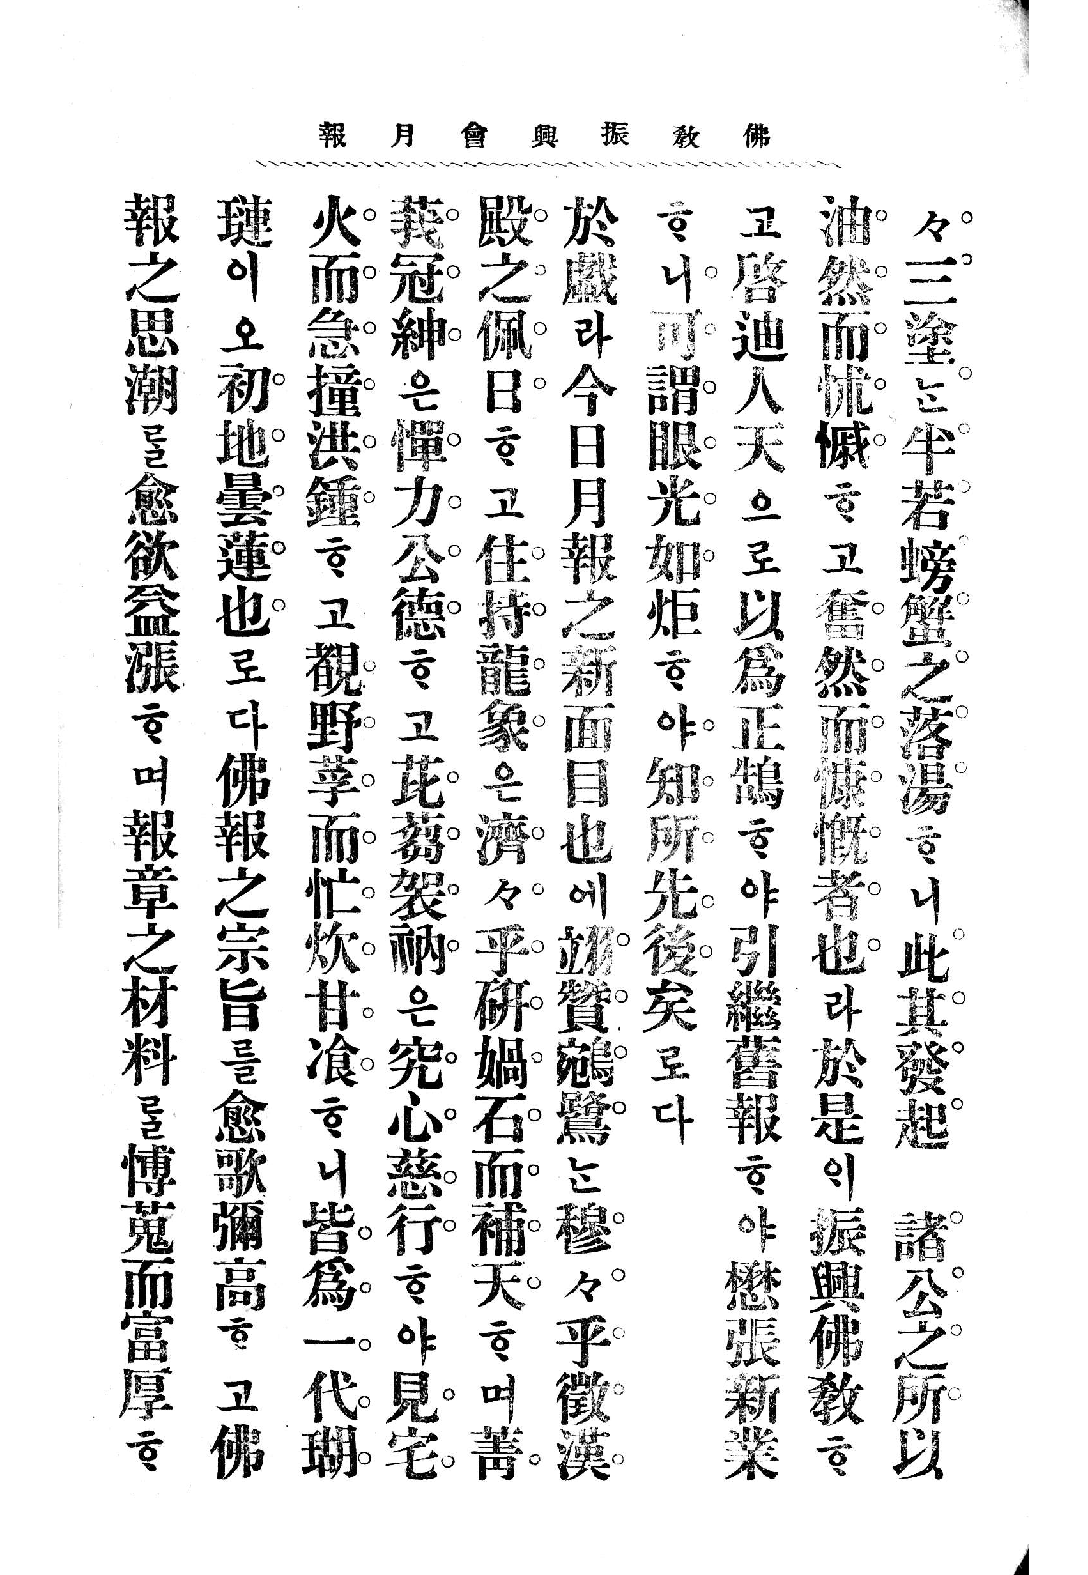 佛敎振興會月報
々三塗ᄂᆞᆫ半若螃蟹之落湯ᄒᆞ니此其發起 諸公之所以
油然而怵慽ᄒᆞ고奮然而慷慨者也라於是의振興佛敎ᄒᆞ
고啓迪人天으로以爲正鵠ᄒᆞ야引繼舊報ᄒᆞ야懋張新業
ᄒᆞ니可謂眼光如炬ᄒᆞ야知所先後矣로다
於戱라今日月報之新面目也에翊贊鵷鷺ᄂᆞᆫ穆々乎徵漢
殿之佩日ᄒᆞ고住持龍象은濟々乎硏媧石而補天ᄒᆞ며菁
莪冠紳은憚力公德ᄒᆞ고芘蒭袈衲은究心慈行ᄒᆞ야見宅
火而急撞洪鍾ᄒᆞ고覩野莩而忙炊甘飡ᄒᆞ니皆爲一代瑚
璉이오初地曇蓮也로다佛報之宗旨를愈歌彌高ᄒᆞ고佛
報之思潮를愈欲益漲ᄒᆞ며報章之材料를博蒐而富厚ᄒᆞ